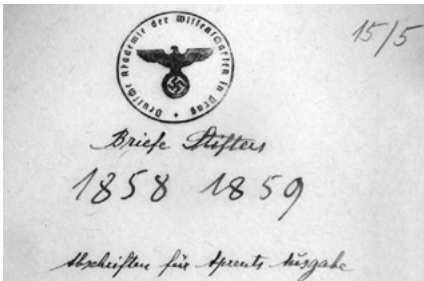 Deutsche Akademie der Wissenschaften in Prag
15/5
Briefe Stifters
1858 1859
Abschriften für Sprents Ausgabe